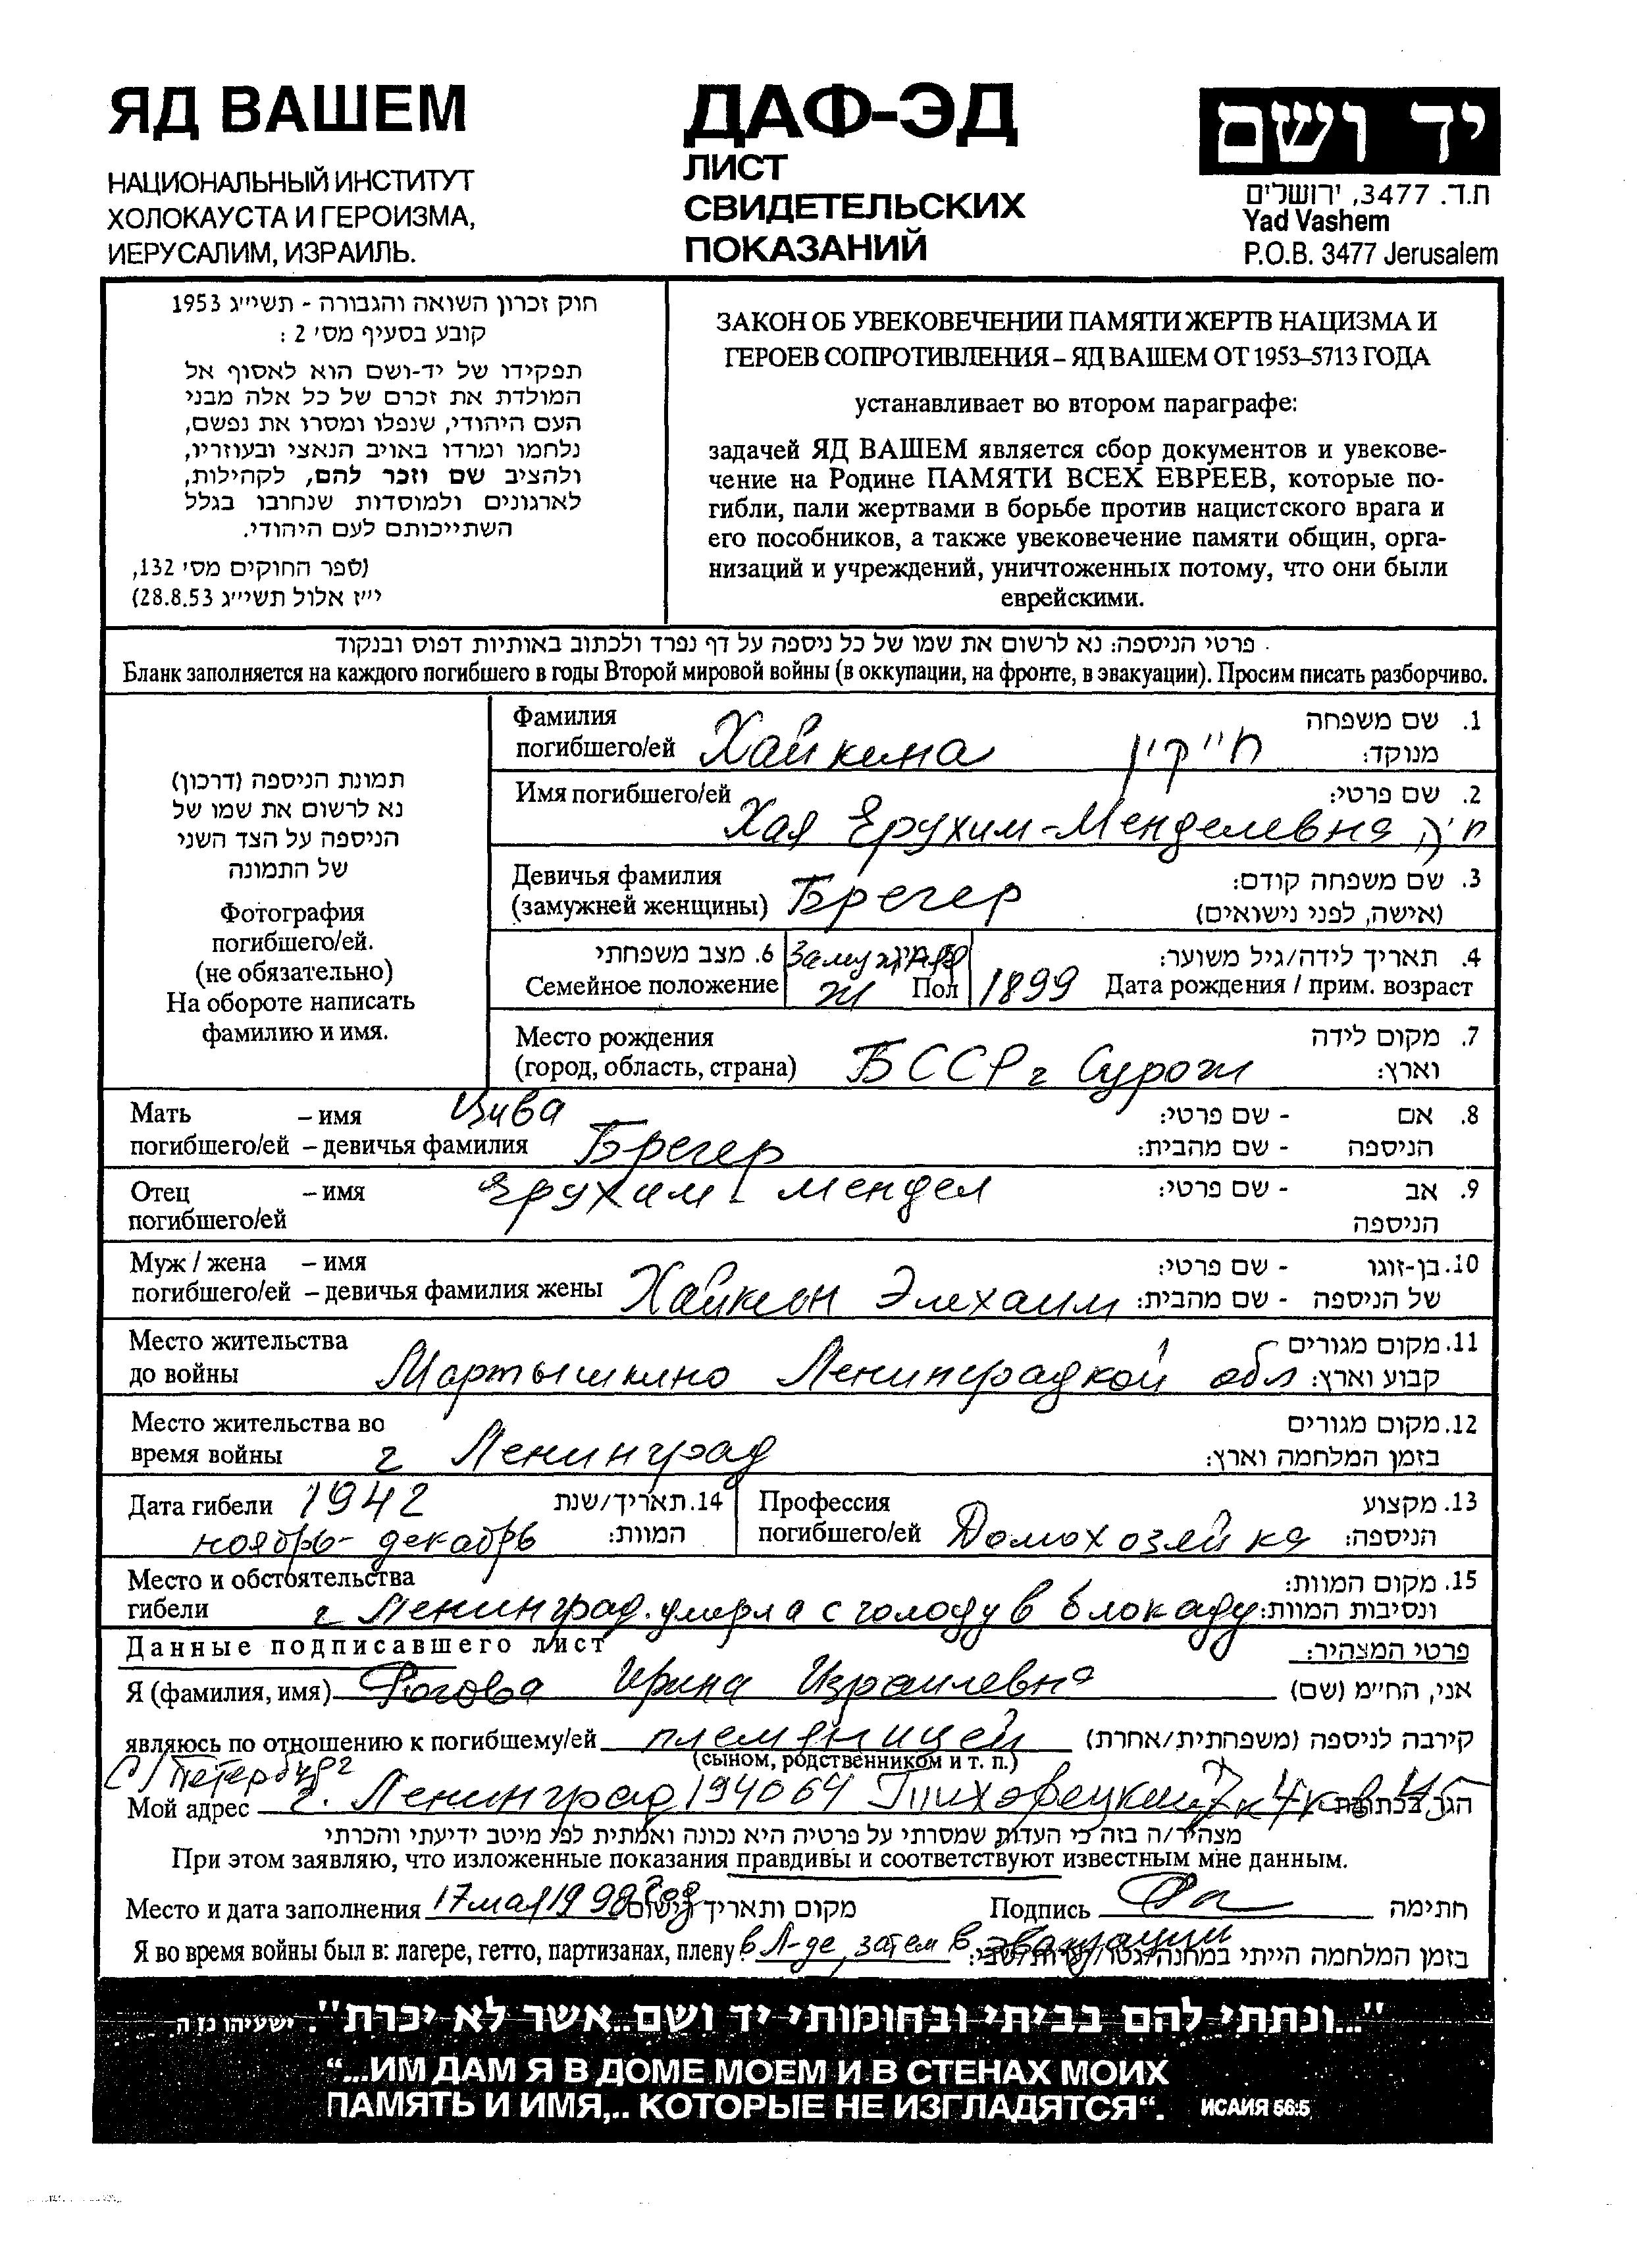 ЯД ВАШЕМ
НАЦИОНАЛЬНЫЙ ИНСТИТУТ
ХОЛОКАУСТА И ГЕРОИЗМА,
ИЕРУСАЛИМ, ИЗРАИЛЬ.
ДАФ-ЭД
ЛИСТ
СВИДЕТЕЛЬСКИХ
ПОКАЗАНИЙ
יד ושם
ת.ד. 3477, ירושלים
Yad Vashem
P.O.B. 3477 Jerusalem
חוק זכרון השואה והגבורה - תשי״ג 1953
קובע בסעיף מס׳ 2 :
תפקידו של יד-ושם הוא לאסוף אל
המולדת את זכרם של כל אלה מבני
העם היהודי, שנפלו ומסרו את נפשם,
נלחמו ומרדו באויב הנאצי ובעוזריו,
ולהציב שם וזכר להם, לקהילות,
לארגונים ולמוסדות שנחרבו בגלל
השתייכותם לעם היהודי.
(ספר החוקים מס׳ 132,
י״ז אלול תשי״ג 28.8.53)
ЗАКОН ОБ УВЕКОВЕЧЕНИИ ПАМЯТИ ЖЕРТВ НАЦИЗМА И
ГЕРОЕВ СОПРОТИВЛЕНИЯ – ЯД ВАШЕМ ОТ 1953–5713 ГОДА
устанавливает во втором параграфе:
задачей ЯД ВАШЕМ является сбор документов и увекове-
чение на Родине ПАМЯТИ ВСЕХ ЕВРЕЕВ, которые по-
гибли, пали жертвами в борьбе против нацистского врага и
его пособников, а также увековечение памяти общин, орга-
низаций и учреждений, уничтоженных потому, что они были
еврейскими.
פרטי הניספה: נא לרשום את שמו של כל ניספה על דף נפרד ולכתוב באותיות דפוס ובנקוד
Бланк заполняется на каждого погибшего в годы Второй мировой войны (в оккупации, на фронте, в эвакуации). Просим писать разборчиво.
תמונת הניספה (דרכון)
נא לרשום את שמו של
הניספה על הצד השני
של התמונה
Фотография
погибшего/ей.
(не обязательно)
На обороте написать
фамилию и имя.
Фамилия 1. שם משפחה
погибшего/ей Хайкина חייקין מנוקד:
Имя погибшего/ей 2. שם פרטי:
Хая Ерухим-Менделевна חיה
Девичья фамилия 3. שם משפחה קודם:
(замужней женщины) Брегер (אישה, לפני נישואים)
6. מצב משפחתי Замужняя 4. תאריך לידה/גיל משוער:
Семейное положение Ж Пол 1899 Дата рождения / прим. возраст
Место рождения 7. מקום לידה
(город, область, страна) БССР г Сурож וארץ:
Мать – имя Цива 8. אם - שם פרטי:
погибшего/ей – девичья фамилия Брегер הניספה - שם מהבית:
Отец – имя Ерухим-Мендел 9. אב - שם פרטי:
погибшего/ей הניספה
Муж / жена – имя 10. בן-זוגו - שם פרטי:
погибшего/ей – девичья фамилия жены Хайкин Элехаим של הניספה - שם מהבית:
Место жительства 11. מקום מגורים
до войны Мартышкино Ленинградкой обл קבוע וארץ:
Место жительства во 12. מקום מגורים
время войны г Ленинград בזמן המלחמה וארץ:
Дата гибели 1942 14. תאריך/שנת Профессия 13. מקצוע
ноябрь-декабрь המוות: погибшего/ей Домохозяйка הניספה:
Место и обстоятельства 15. מקום המוות:
гибели г Ленинград. умерла с голоду в блокаду ונסיבות המוות:
Данные подписавшего лист פרטי המצהיר:
Я (фамилия, имя) Рогова Ирина Израилевна אני, החי״מ (שם)
являюсь по отношению к погибшему/ей племяницей קירבה לניספה (משפחתית/אחרת)
(сыном, родственником и т. п.)
С/Петербург
Мой адрес г. Ленинград 194064 Тихорецкий 7 к 4 кв 45
מצהיר/ה בזה כי העדות שמסרתי על פרטיה היא נכונה ואמתית לפי מיטב ידיעתי והכרתי
При этом заявляю, что изложенные показания правдивы и соответствуют известным мне данным.
Место и дата заполнения 17 мая 1998 год מקום ותאריך Подпись חתימה
Я во время войны был в: лагере, гетто, партизанах, плену в Л-де, затем в эвакуации בזמן המלחמה הייתי במחנה/גטו/
"...ונתתי להם בביתי ובחומותי יד ושם..אשר לא יכרת". ישעיהו נו ה
“...ИМ ДАМ Я В ДОМЕ МОЕМ И В СТЕНАХ МОИХ
ПАМЯТЬ И ИМЯ,.. КОТОРЫЕ НЕ ИЗГЛАДЯТСЯ“. ИСАИЯ 56:5